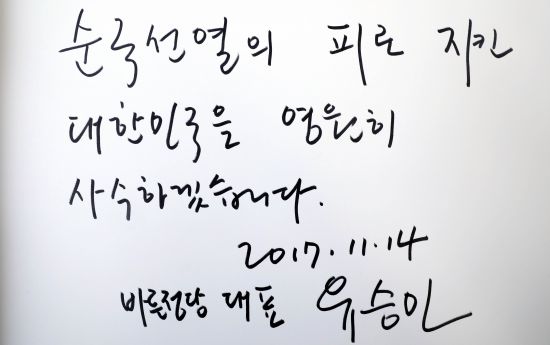 순국선열의 피로 지킨
대한민국을 영원히
사수하겠습니다.
2017.11.14
바른정당 대표 유승민